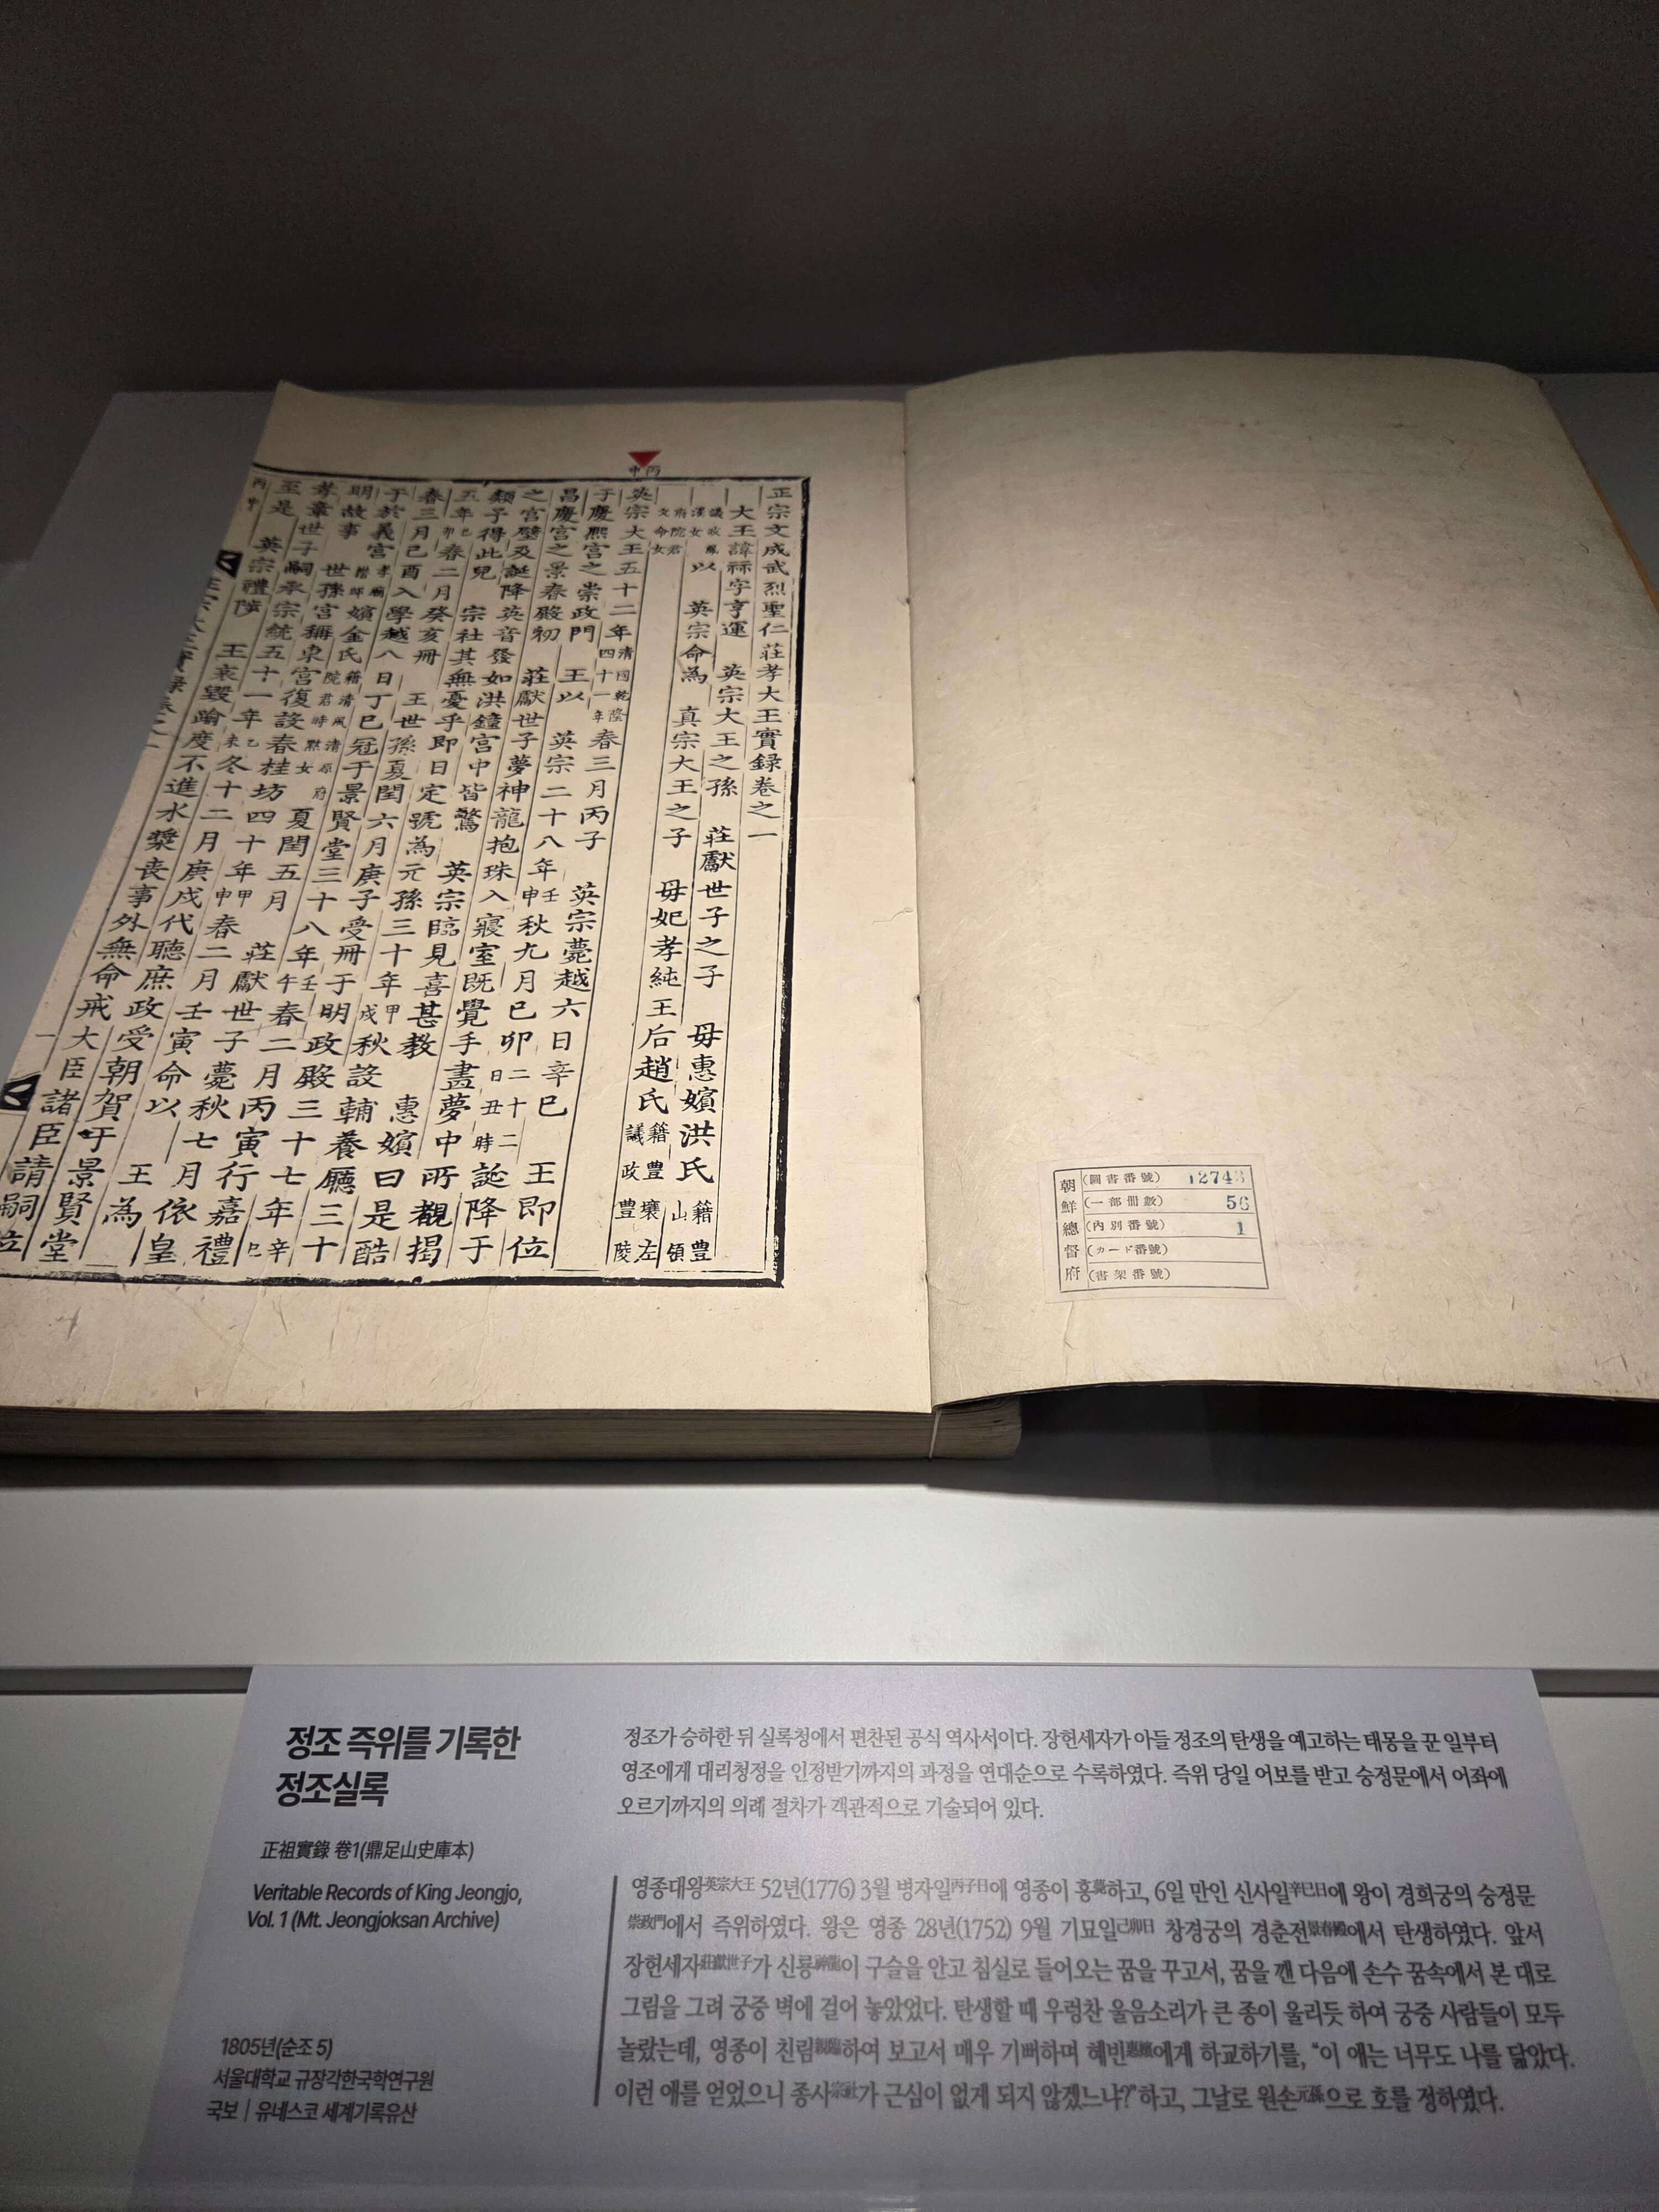 丙申
正宗文成武烈聖仁莊孝大王實錄卷之一
大王諱祘字亨運 英宗大王之孫 莊獻世子之子 母惠嬪洪氏籍豊山領
議政鳳漢女以 英宗命為 真宗大王之子 母妃孝純王后趙氏籍豊壤左議政豊陵
府院君文命女
英宗大王五十二年清國乾隆四十一年春三月丙子 英宗薨越六日辛巳 王即位
于慶熙宮之崇政門 王以 英宗二十八年壬申秋九月己卯二十二日丑時誕降于
昌慶宮之景春殿初 莊獻世子夢神龍抱珠入寢室既覺手畫夢中所覩揭
之宮壁及誕降英音發如洪鐘宮中皆驚 英宗臨見喜甚教 惠嬪曰是酷
類予得此兒 宗社其無憂乎即日定號為元孫三十年甲戌秋設輔養廳三十
五年己卯春二月癸亥冊 王世孫夏閏六月庚子受冊于明政殿三十七年辛巳
春三月己酉入學越八日丁巳冠于景賢堂三十八年壬午春二月丙寅行嘉禮
于於義宮孝廟潛邸嬪金氏籍清風清原府院君時默女夏閏五月 莊獻世子薨秋七月依 皇
明故事 世孫宮稱東宮復設春桂坊四十年甲申春二月壬寅命以 王為
孝章世子嗣承宗統五十一年乙未冬十二月庚戌代聽庶政受朝賀于景賢堂
至是 英宗禮陟 王哀毀踰度不進水漿喪事外無命戒大臣諸臣請嗣位
丙申
一
朝鮮總督府
(圖書番號) 12743
(一部冊數) 56
(內別番號) 1
(カード番號)
(書架番號)
정조 즉위를 기록한
정조실록
正祖實錄 卷1(鼎足山史庫本)
Veritable Records of King Jeongjo,
Vol. 1 (Mt. Jeongjoksan Archive)
1805년(순조 5)
서울대학교 규장각한국학연구원
국보 | 유네스코 세계기록유산
정조가 승하한 뒤 실록청에서 편찬된 공식 역사서이다. 장헌세자가 아들 정조의 탄생을 예고하는 태몽을 꾼 일부터
영조에게 대리청정을 인정받기까지의 과정을 연대순으로 수록하였다. 즉위 당일 어보를 받고 숭정문에서 어좌에
오르기까지의 의례 절차가 객관적으로 기술되어 있다.
영종대왕英宗大王 52년(1776) 3월 병자일丙子日에 영종이 훙薨하고, 6일 만인 신사일辛巳日에 왕이 경희궁의 숭정문
崇政門에서 즉위하였다. 왕은 영종 28년(1752) 9월 기묘일己卯日 창경궁의 경춘전景春殿에서 탄생하였다. 앞서
장헌세자莊獻世子가 신룡神龍이 구슬을 안고 침실로 들어오는 꿈을 꾸고서, 꿈을 깬 다음에 손수 꿈속에서 본 대로
그림을 그려 궁중 벽에 걸어 놓았었다. 탄생할 때 우렁찬 울음소리가 큰 종이 울리듯 하여 궁중 사람들이 모두
놀랐는데, 영종이 친림親臨하여 보고서 매우 기뻐하며 혜빈惠嬪에게 하교하기를, “이 애는 너무도 나를 닮았다.
이런 애를 얻었으니 종사宗社가 근심이 없게 되지 않겠느냐?”하고, 그날로 원손元孫으로 호를 정하였다.